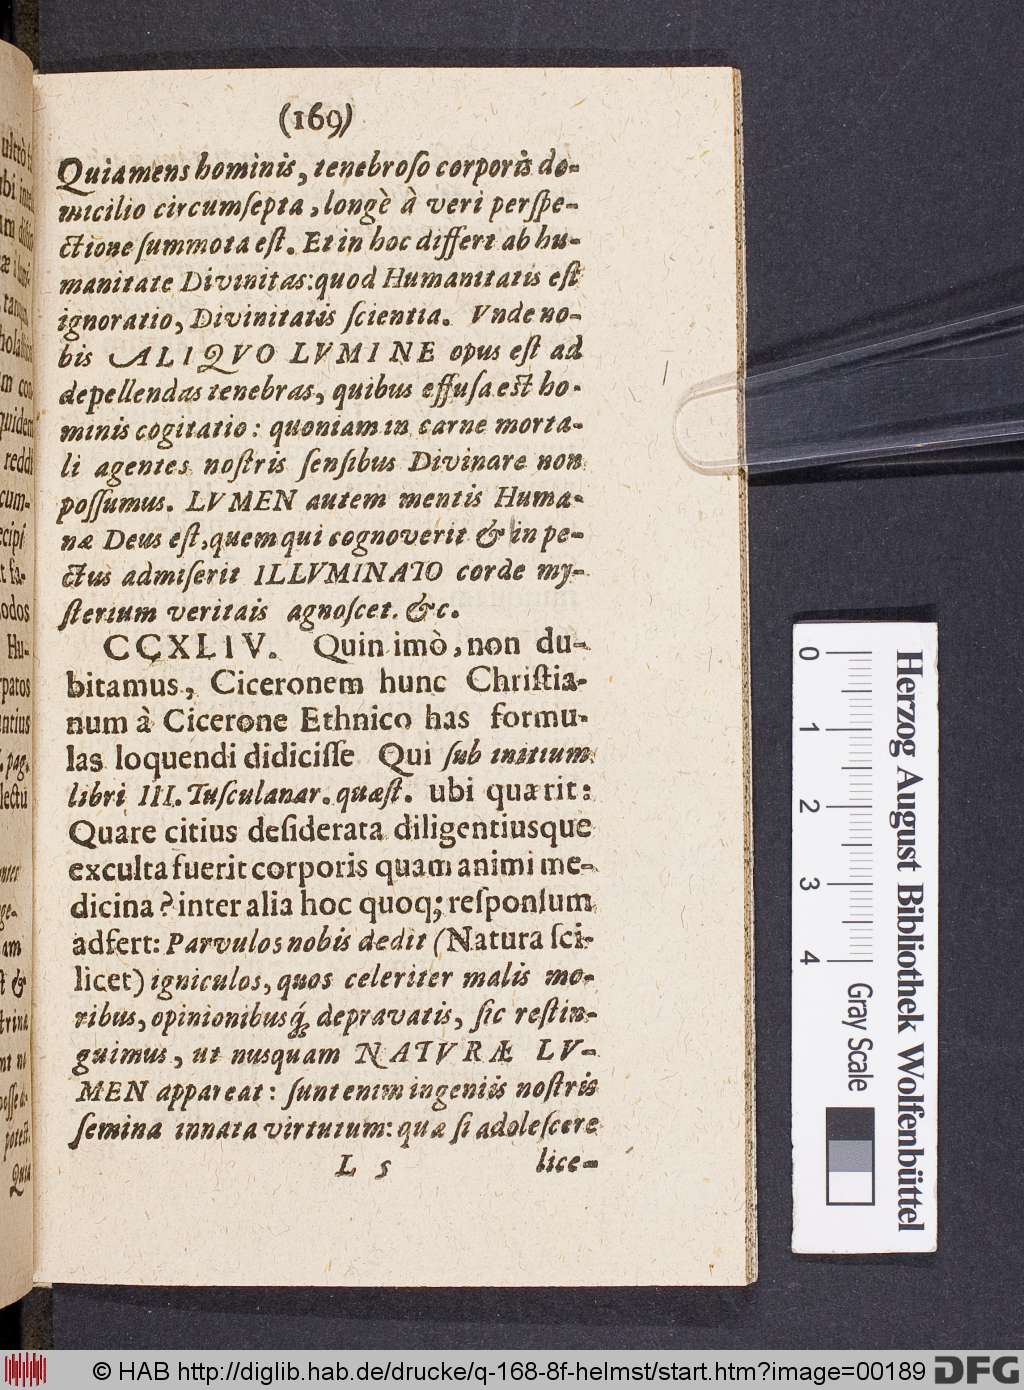 (169)
Quia mens hominis, tenebroso corporis do-
micilio circumsepta, longè à veri perspe-
ctione summota est. Et in hoc differt ab hu-
manitate Divinitas: quod Humanitatis est
ignoratio, Divinitatis scientia. Vnde no-
bis ALIQVO LVMINE opus est ad
depellendas tenebras, quibus effusa est ho-
minis cogitatio: quoniam in carne morta-
li agentes nostris sensibus Divinare non
possumus. LVMEN autem mentis Huma-
næ Deus est, quem qui cognoverit & in pe-
ctus admiserit ILLVMINATO corde my-
sterium veritais agnoscet. &c.
CCXLIV. Quin imò, non du-
bitamus, Ciceronem hunc Christia-
num à Cicerone Ethnico has formu-
las loquendi didicisse Qui sub initium
libri III. Tusculanar. quæst. ubi quærit:
Quare citius desiderata diligentiusque
exculta fuerit corporis quam animi me-
dicina? inter alia hoc quoq; responsum
adfert: Parvulos nobis dedit (Natura sci-
licet) igniculos, quos celeriter malis mo-
ribus, opinionibusq́; depravatis, sic restin-
guimus, ut nusquam NATVRÆ LV-
MEN appareat: sunt enim ingeniis nostris
semina innata virtutum: quæ si adolescere
L 5 lice-
Herzog August Bibliothek Wolfenbüttel
0 1 2 3 4 Gray Scale
© HAB http://diglib.hab.de/drucke/q-168-8f-helmst/start.htm?image=00189 DFG